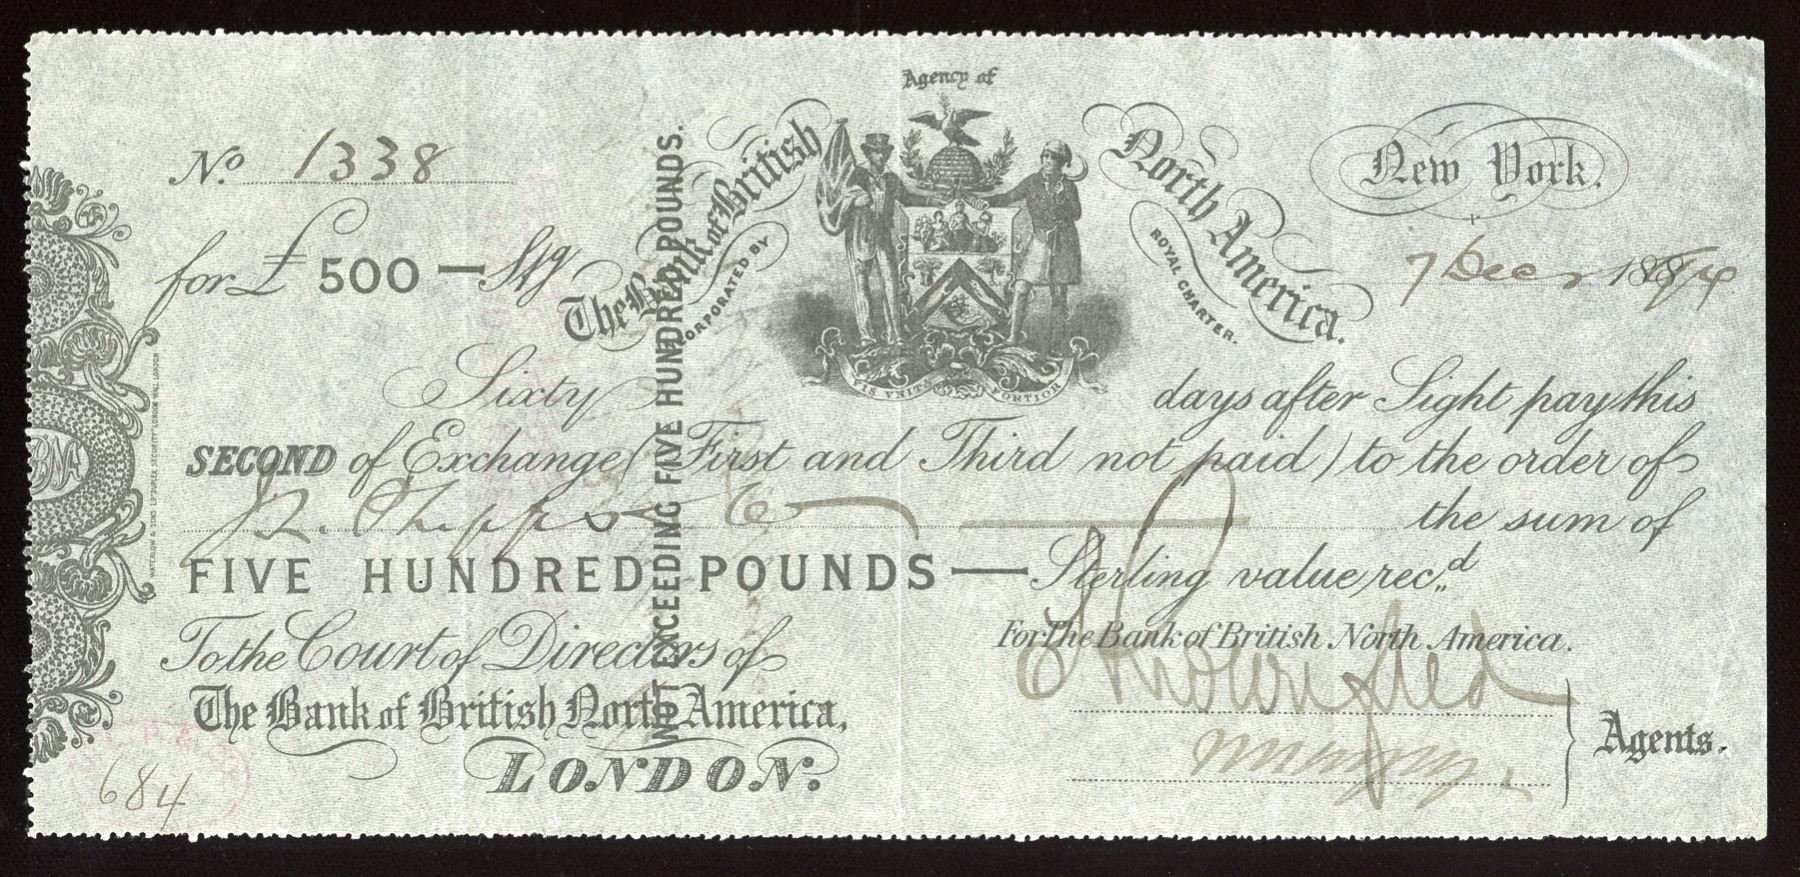 Agency of
The Bank of British North America.
INCORPORATED BY ROYAL CHARTER.
New York.
No 1338
7 Decr 188
for £ 500 — Stg
NOT EXCEEDING FIVE HUNDRED POUNDS.
Sixty days after Sight pay this
SECOND of Exchange (First and Third not paid) to the order of
the sum of
FIVE HUNDRED POUNDS — Sterling value recd.
To the Court of Directors of
For The Bank of British North America.
The Bank of British North America,
LONDON.
Agents.
684
WATERLOW & SONS LIMITED LONDON WALL LONDON